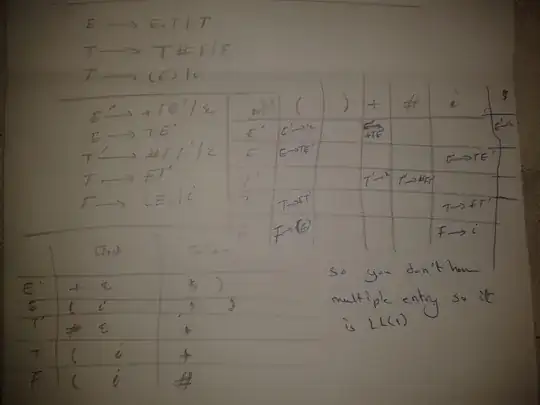 E → E+T / T
T → T # F / F
E' → +TE' / ε
E → TE'
T' → #FT' / ε
T → FT'
( ) + # i $
E' E'→ε E'→+TE' E'→ε
E E→TE' E→TE'
T'→ε T'→#FT'
T→FT' T→FT'
F→(E) F→i
First
E' + ε $ )
E ( i $ )
T' # ε +
T ( i +
F ( i #
so you don't have
multiple entry so it
is LL(1)